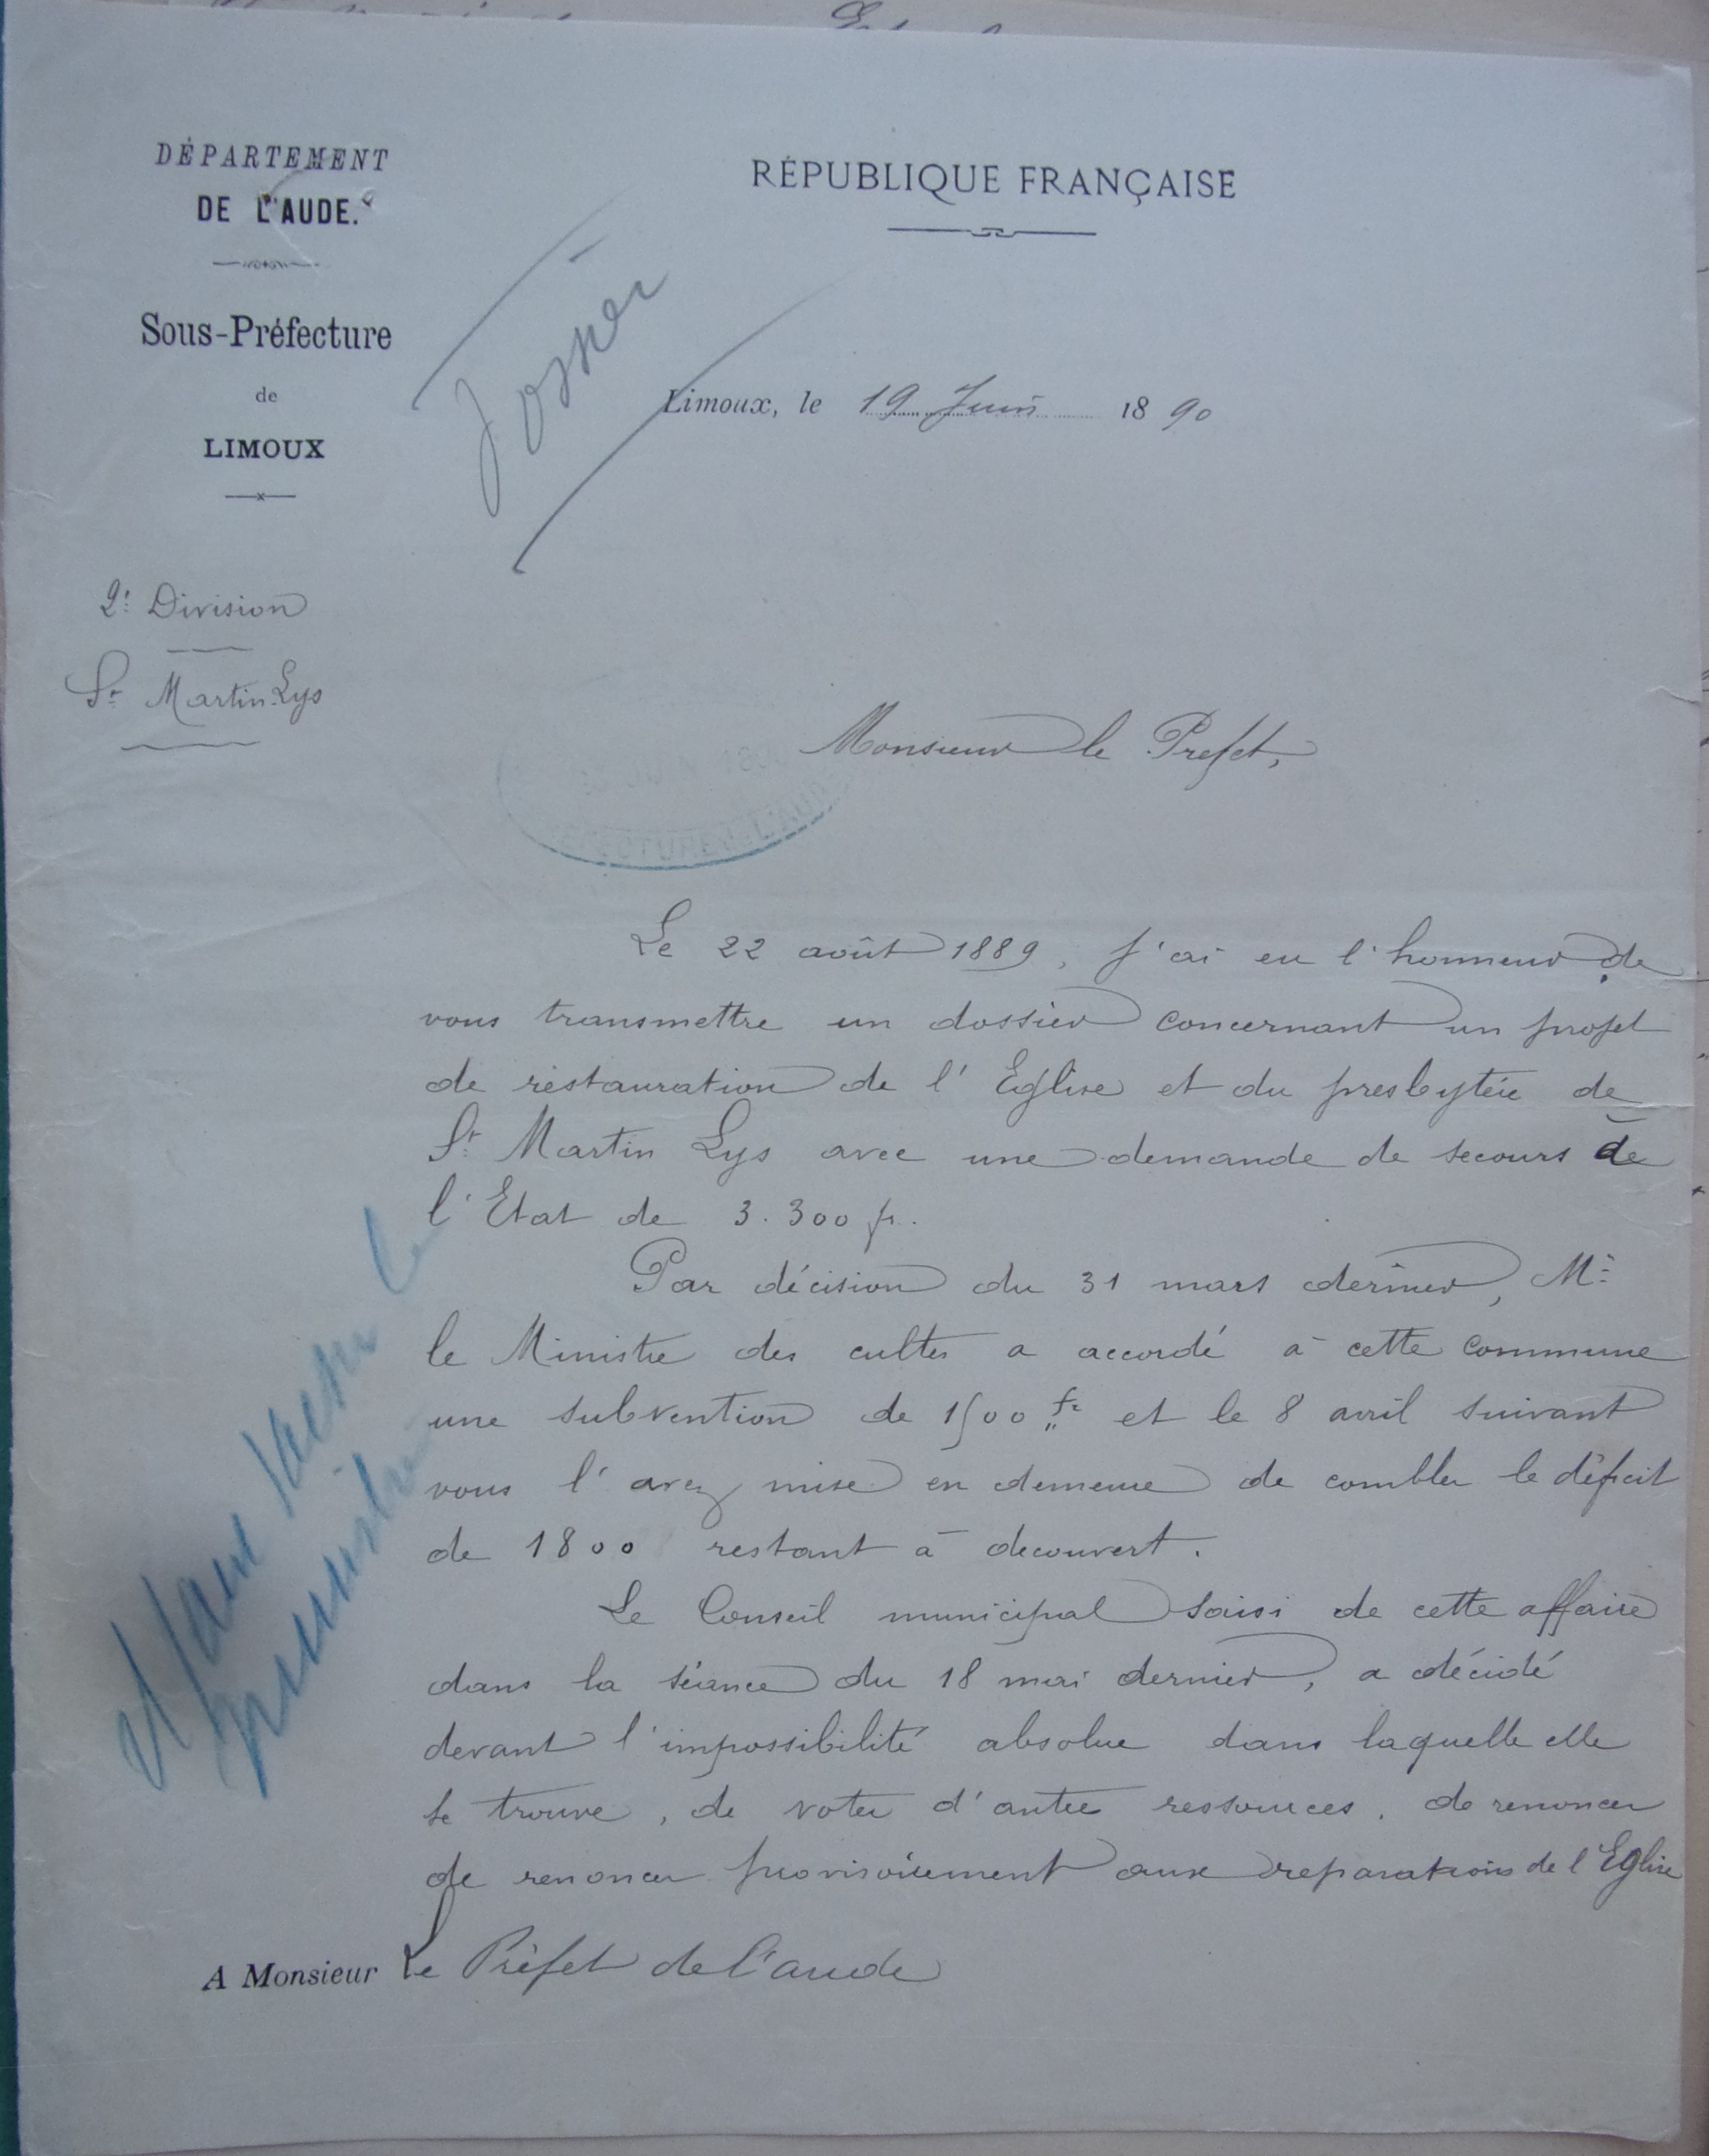 DÉPARTEMENT
DE L'AUDE.
Sous-Préfecture
de
LIMOUX
2e Division
St Martin-Lys
RÉPUBLIQUE FRANÇAISE
Limoux, le 19 Juin 1890
Monsieur le Prefet,
JUIN
L'AUDE
Le 22 août 1889, j'ai eu l'honneur de
vous transmettre un dossier concernant un projet
de restauration de l'Eglise et du presbytère de
St Martin Lys avec une demande de secours de
l'Etat de 3.300 fr.
Par décision du 31 mars dernier, Mr
le Ministre des cultes a accordé à cette commune
une subvention de 1500 fr et le 8 avril suivant
vous l'avez mise en demeure de combler le déficit
de 1800 restant à decouvert.
Le Conseil municipal saisi de cette affaire
dans la séance du 18 mai dernier, a décidé
devant l'impossibilité absolue dans laquelle elle
se trouve, de voter d'autre ressources, de renoncer
de renoncer provisoirement aux reparations de l'Eglise
A Monsieur Le Préfet de l'aude